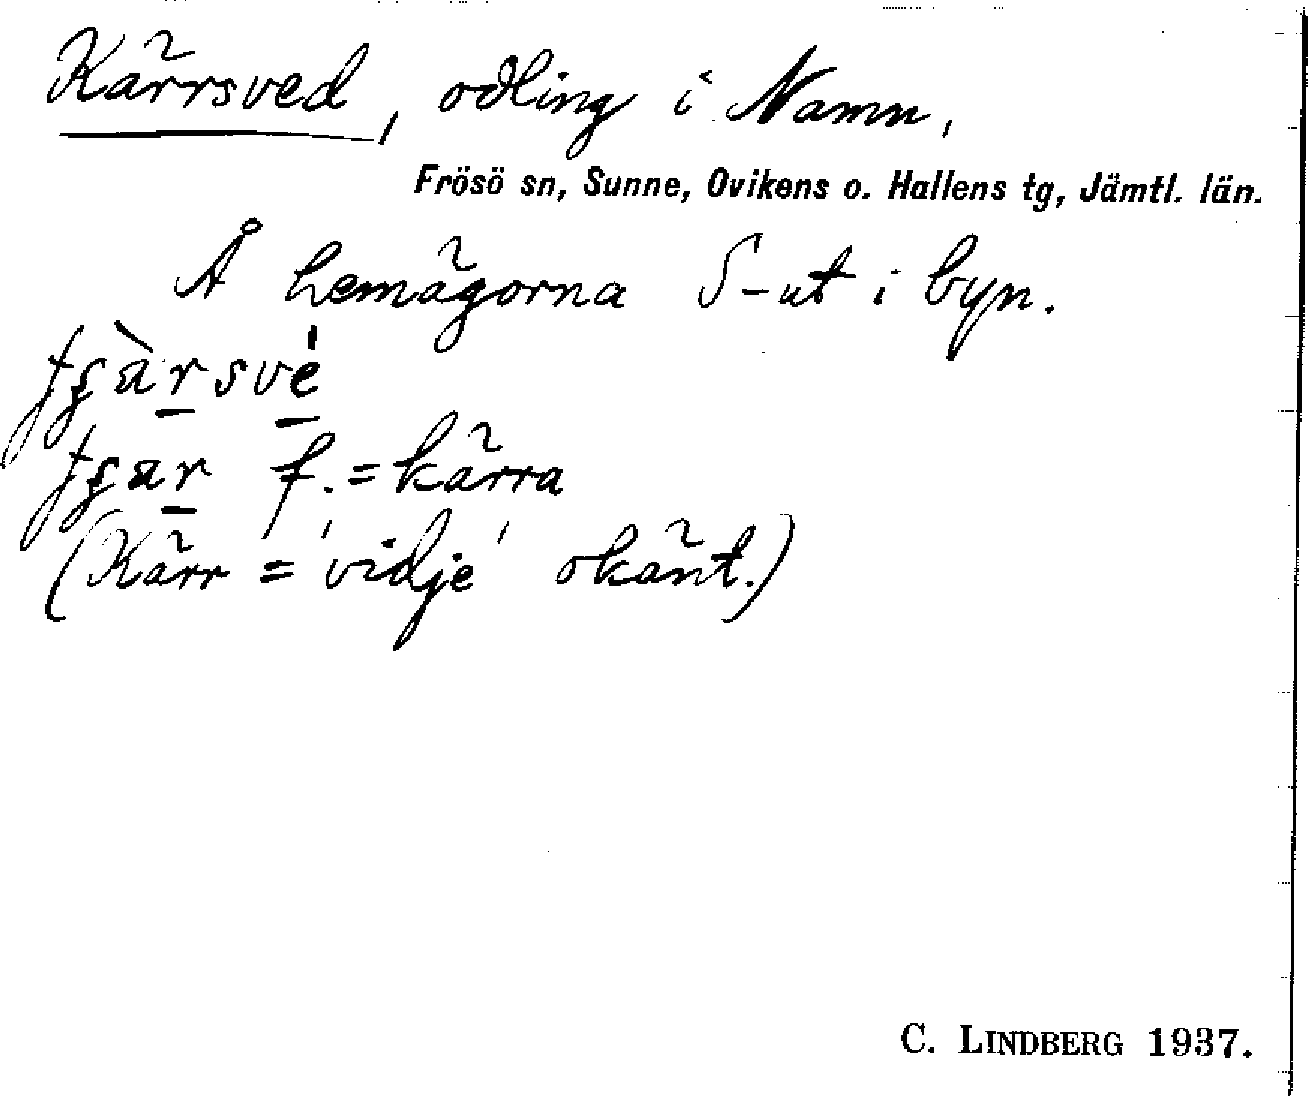 Kärrsved, odling i Namn,
Frösö sn, Sunne, Ovikens o. Hallens tg, Jämtl. län.
Å hemägorna S-ut i byn.
f. = kärra
(Kärr = 'vidje' okänt.)
C. LINDBERG 1937.